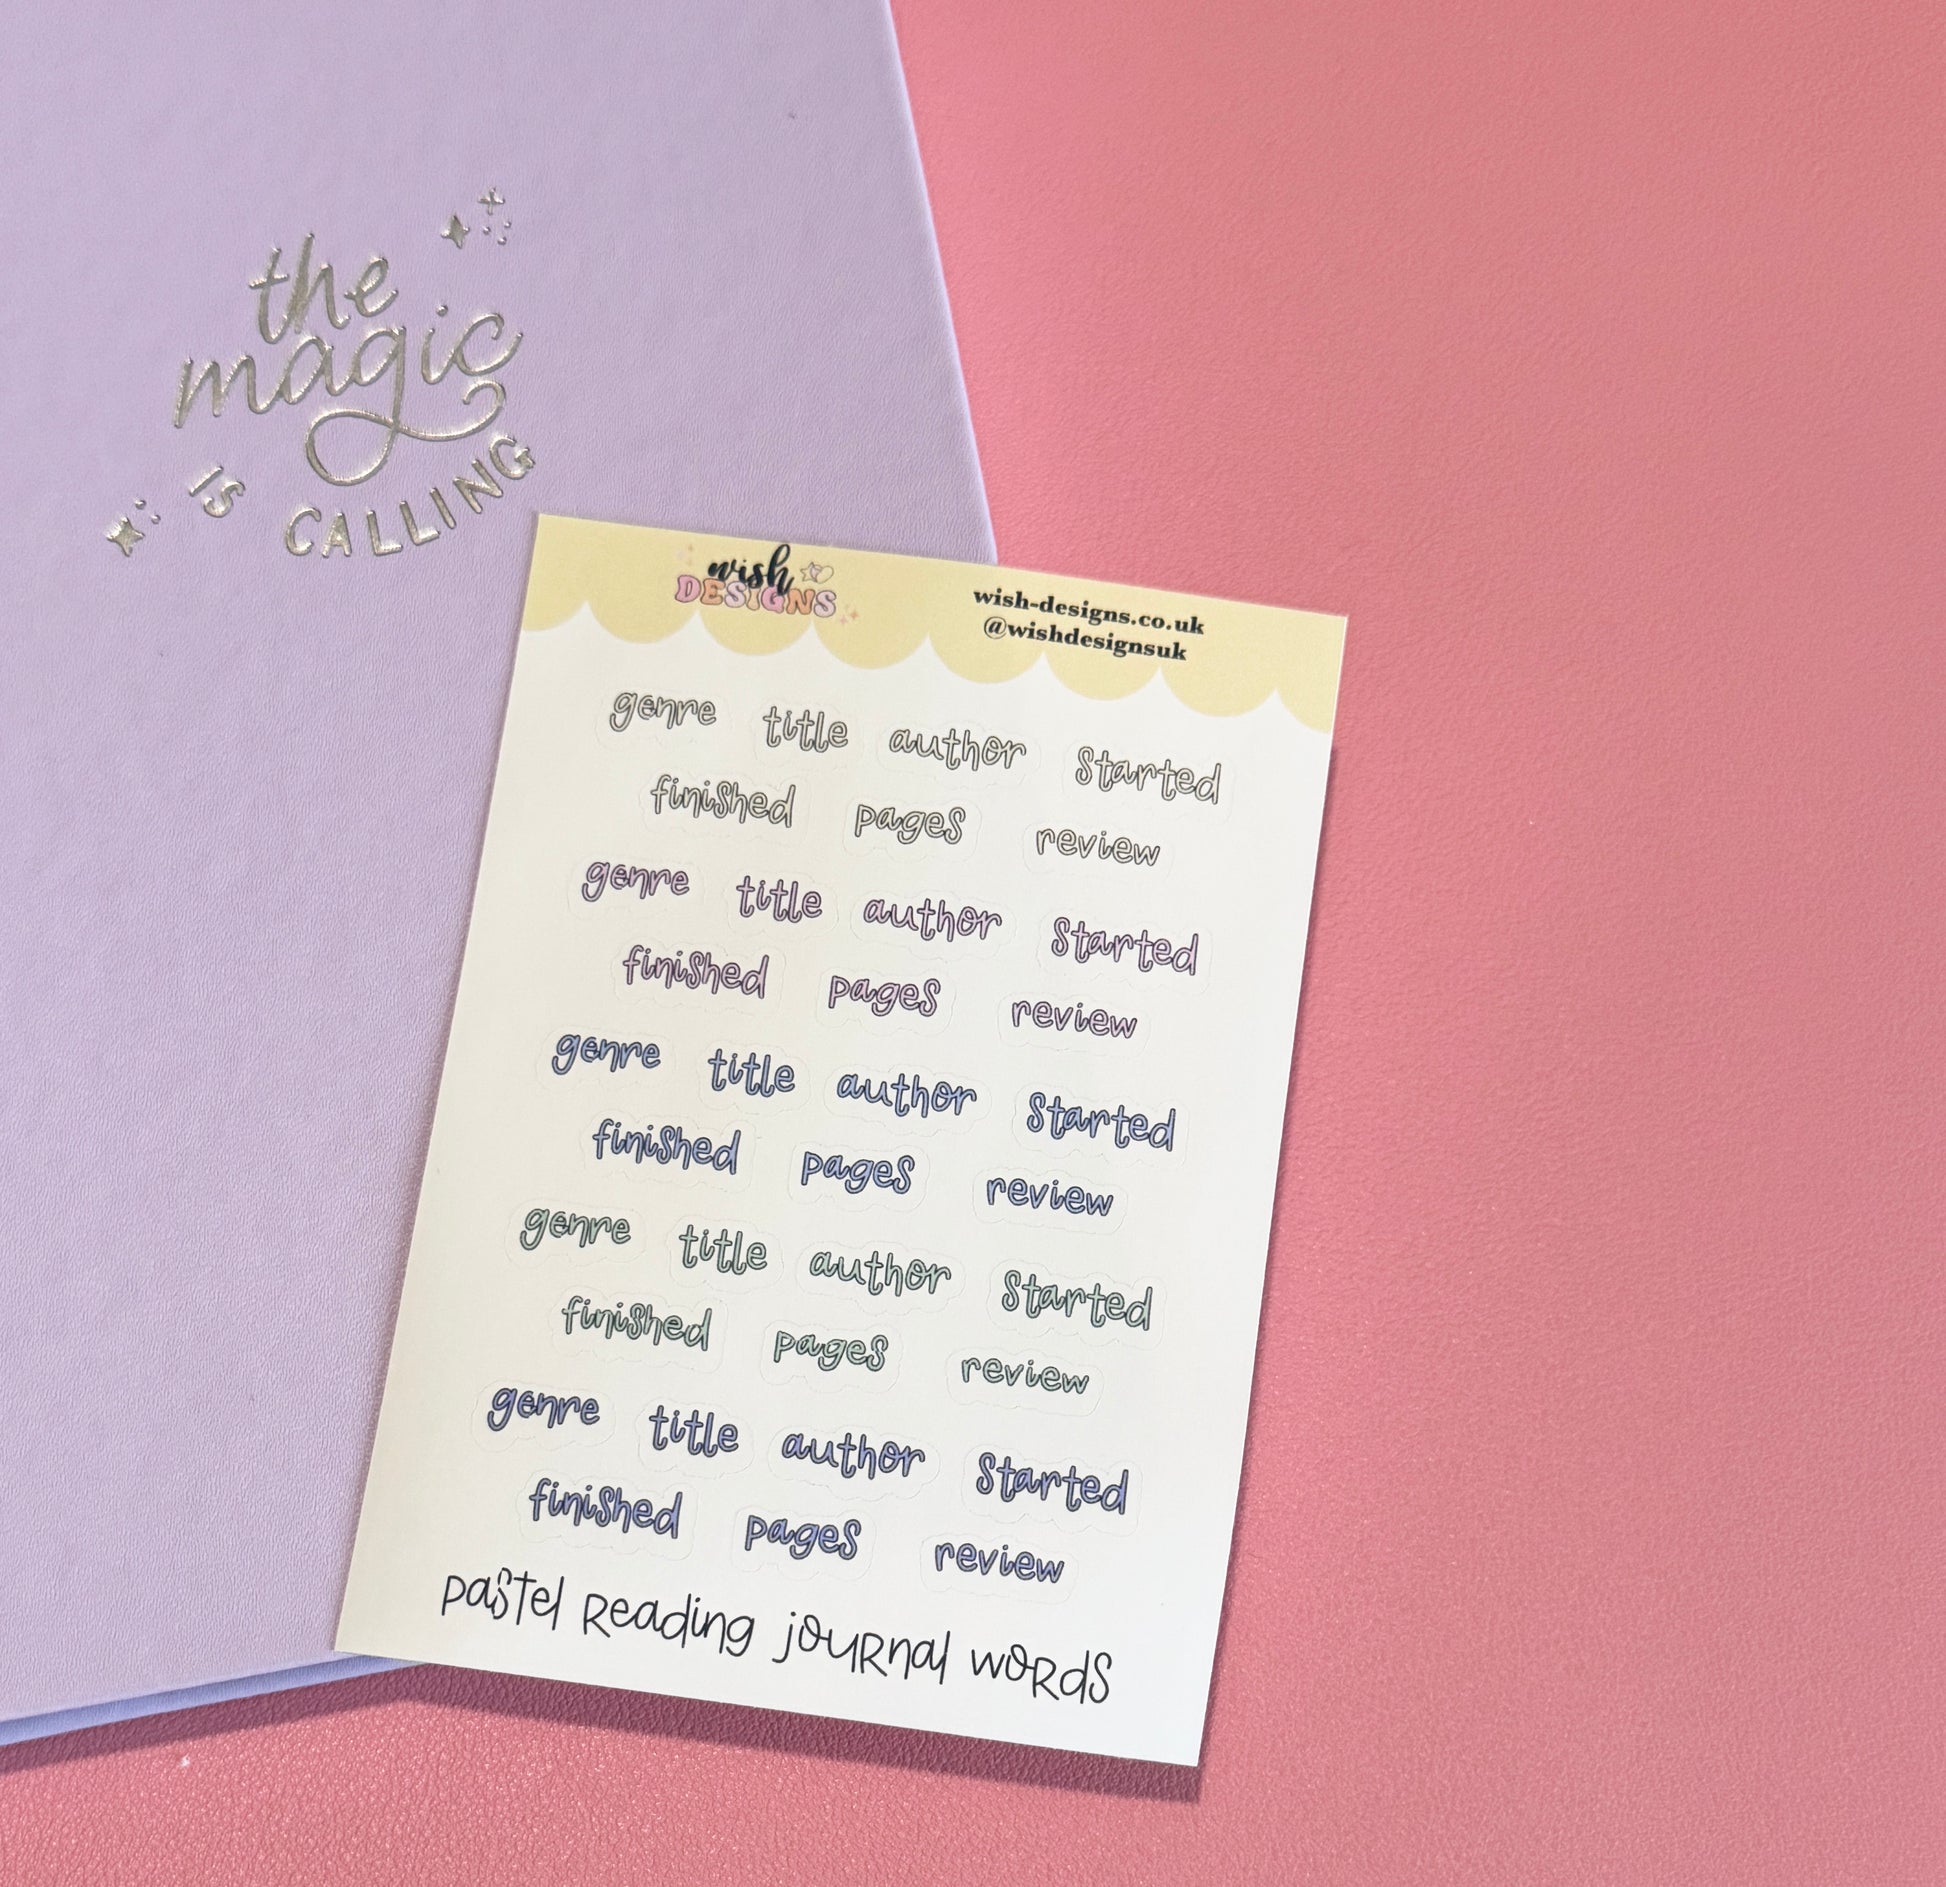 the
magic
IS CALLING
wish
DESIGNS
wish-designs.co.uk
@wishdesignsuk
genre title author started
finished pages review
genre title author started
finished pages review
genre title author started
finished pages review
genre title author started
finished pages review
genre title author started
finished pages review
pastel reading journal words